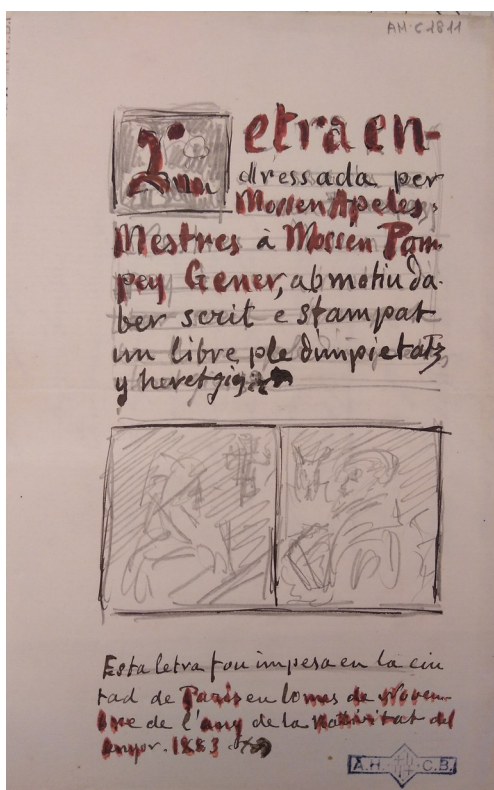 AH·C1811
Letra en-
dressada per
Mossen Apeles
Mestres à Mossen Pom
pey Gener, ab motiu da-
ber scrit e stampat
un libre ple dimpietatz
y heretgia
Esta letra fou impesa en la ciu
tad de Paris en lo mes de Noven-
bre de l'any de la nativitat del
senyor. 1883.
A.H. C.B.